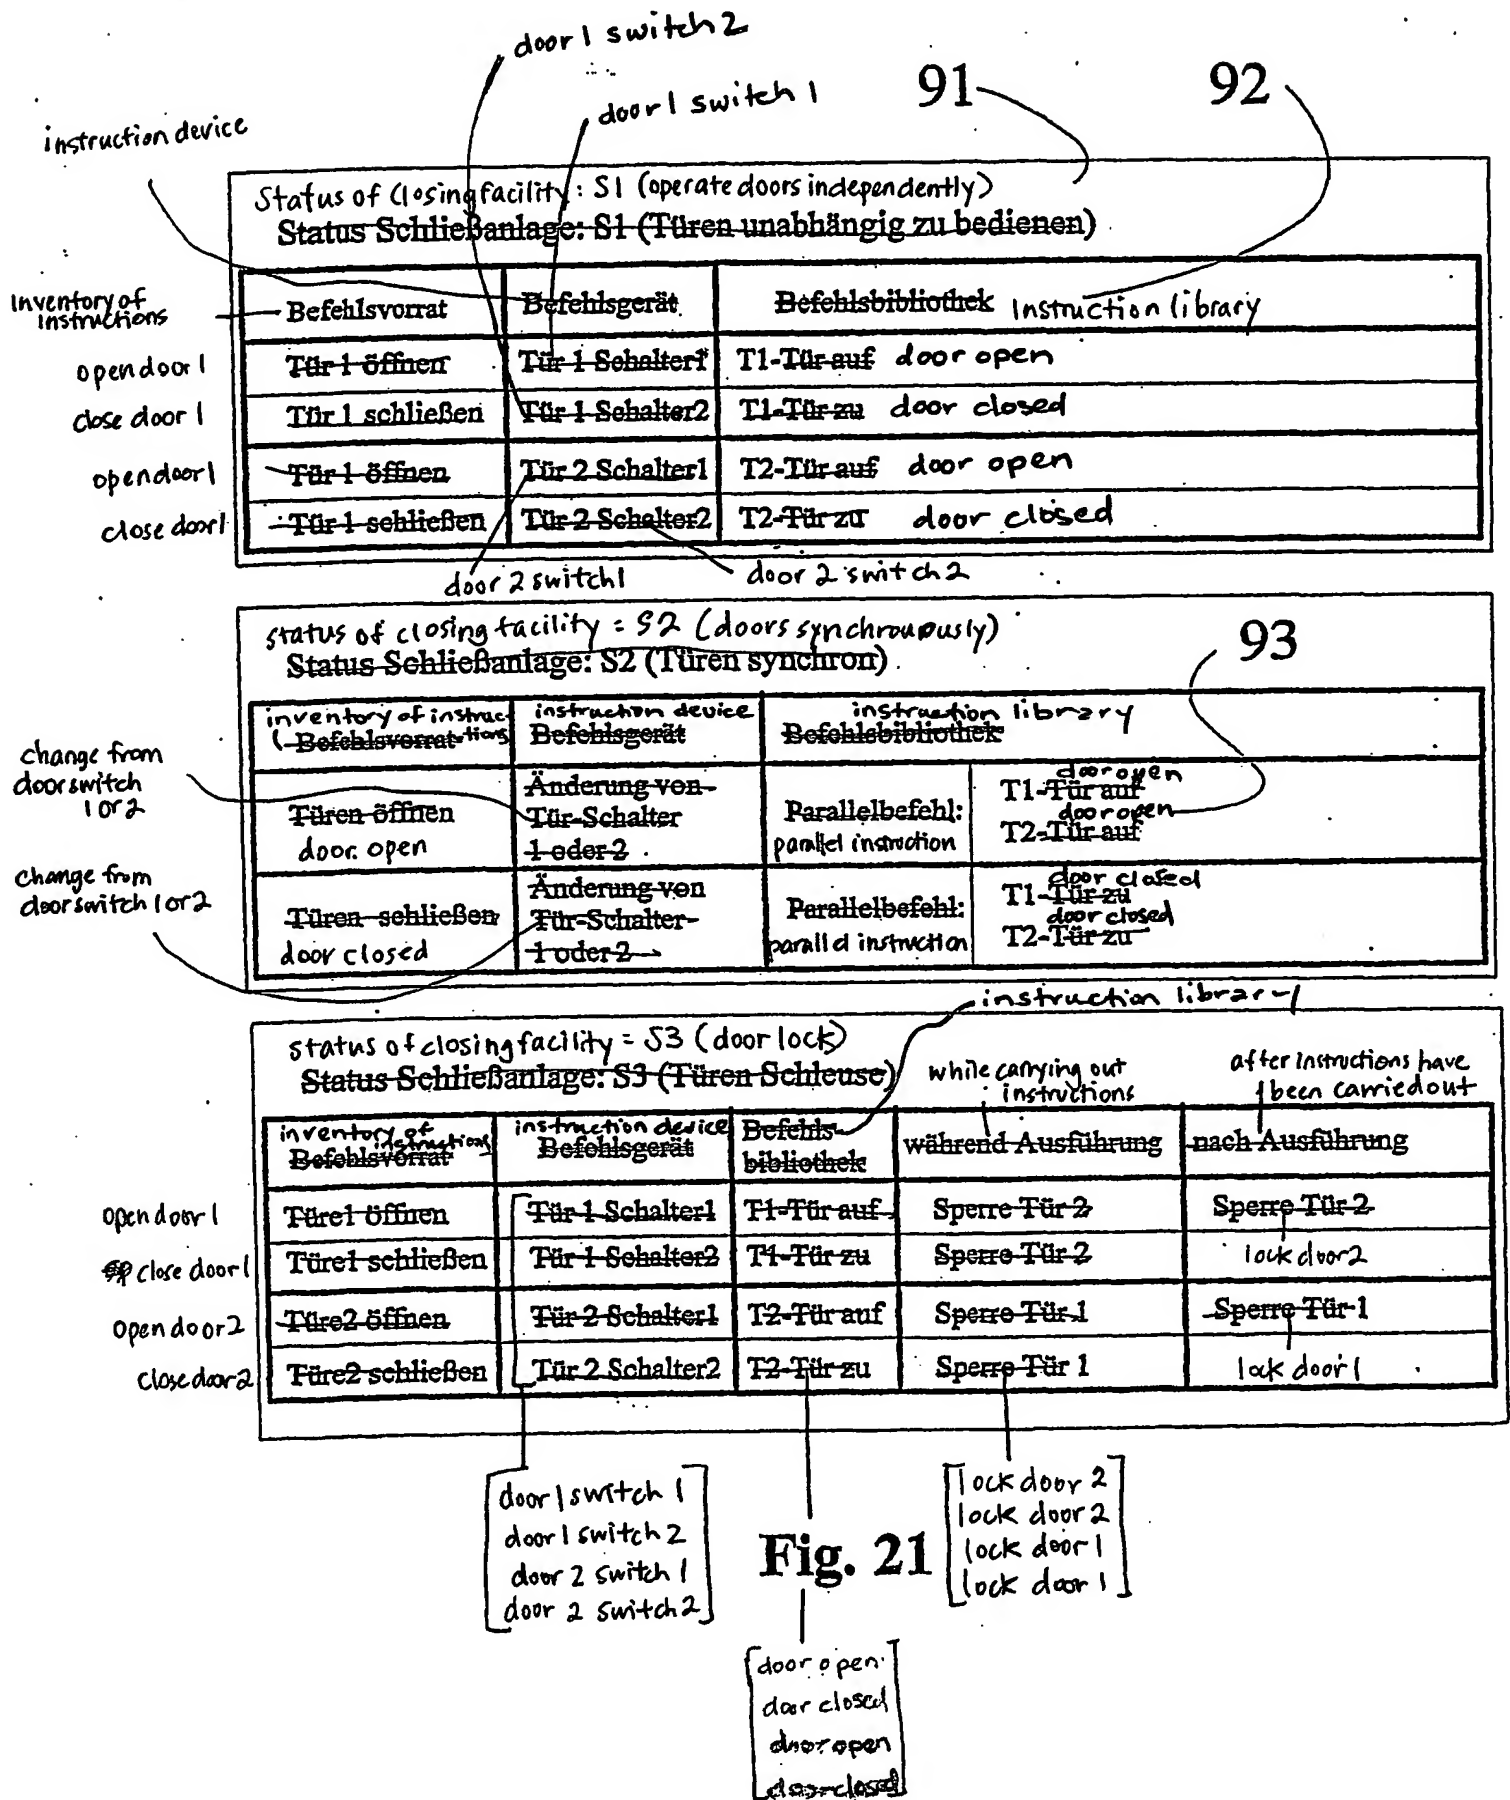 door 1 switch 2
door 1 switch 1
91
92
instruction device
Status of closing facility: S1 (operate doors independently)
Status Schließanlage: S1 (Türen unabhängig zu bedienen)
Inventory of instructions
Befehlsvorrat Befehlsgerät Befehlsbibliothek Instruction library
open door 1 Tür 1 öffnen Tür 1 Schalter1 T1-Tür auf door open
close door 1 Tür 1 schließen Tür 1 Schalter2 T1-Tür zu door closed
open door 1 Tür 1 öffnen Tür 2 Schalter1 T2-Tür auf door open
close door 1 Tür 1 schließen Tür 2 Schalter2 T2-Tür zu door closed
door 2 switch 1 door 2 switch 2
status of closing facility = S2 (doors synchronously)
Status Schließanlage: S2 (Türen synchron)
93
inventory of instructions instruction device instruction library
Befehlsvorrat Befehlsgerät Befehlsbibliothek
change from
door switch
1 or 2
Türen öffnen
door open
Änderung von
Tür-Schalter
1 oder 2
Parallelbefehl:
parallel instruction
door open
T1-Tür auf
door open
T2-Tür auf
change from
door switch 1 or 2
Türen schließen
door closed
Änderung von
Tür-Schalter
1 oder 2
Parallelbefehl:
parallel instruction
door closed
T1-Tür zu
door closed
T2-Tür zu
instruction library
status of closing facility = S3 (door lock)
Status Schließanlage: S3 (Türen Schleuse)
while carrying out
instructions
after instructions have
been carried out
inventory of
instructions
Befehlsvorrat
instruction device
Befehlsgerät
Befehls-
bibliothek
während Ausführung
nach Ausführung
open door 1 Türe1 öffnen Tür 1 Schalter1 T1-Tür auf Sperre Tür 2 Sperre Tür 2
close door 1 Türe1 schließen Tür 1 Schalter2 T1-Tür zu Sperre Tür 2 lock door 2
open door 2 Türe2 öffnen Tür 2 Schalter1 T2-Tür auf Sperre Tür 1 Sperre Tür 1
close door 2 Türe2 schließen Tür 2 Schalter2 T2-Tür zu Sperre Tür 1 lock door 1
door 1 switch 1
door 1 switch 2
door 2 switch 1
door 2 switch 2
Fig. 21
lock door 2
lock door 2
lock door 1
lock door 1
door open
door closed
door open
door closed